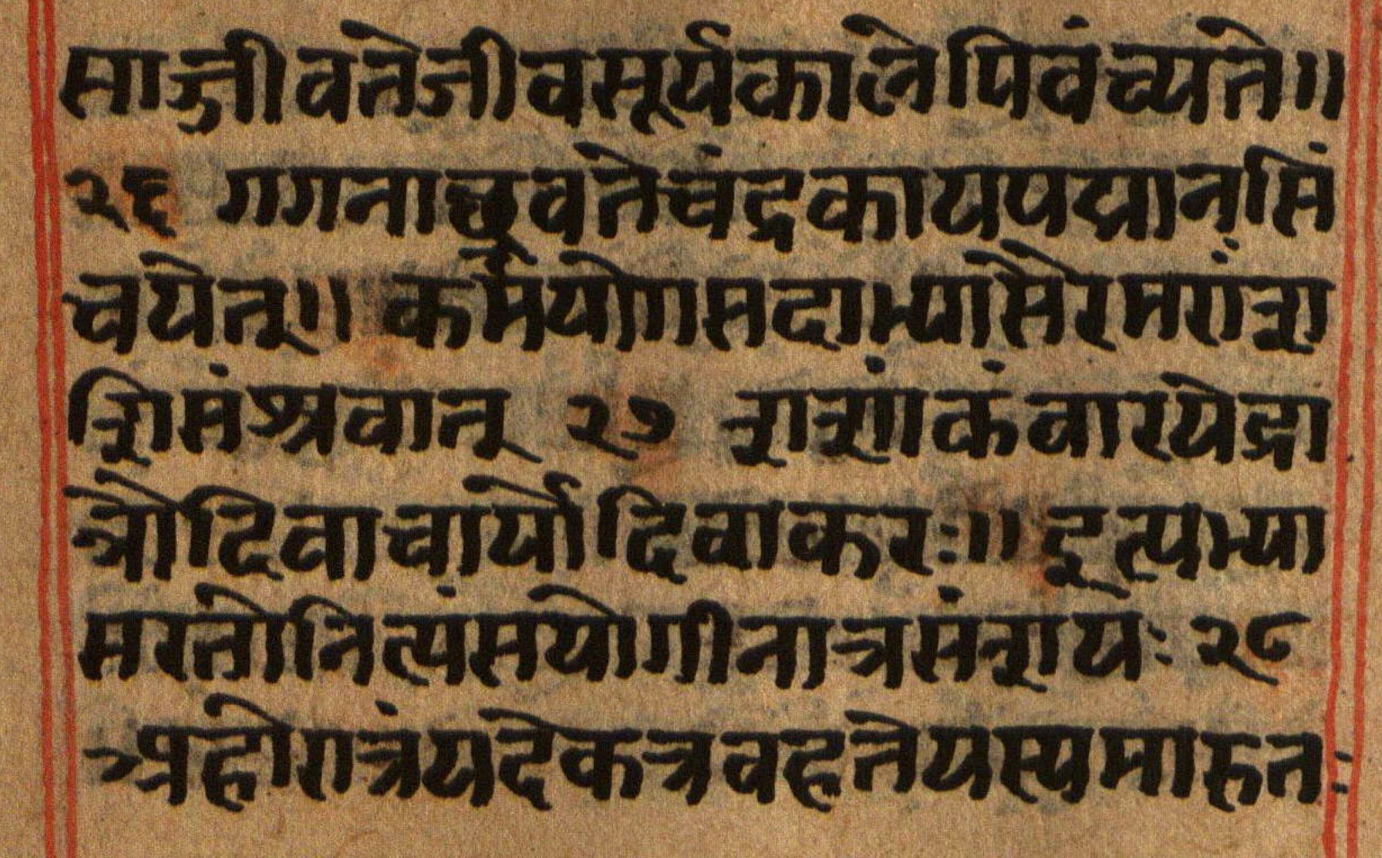 साज्जीवतेजीवसूर्यकालेपिवंच्यते॥
२६ गगनाछ्रवतेचंद्रकायपद्मान्सिं
चयेत्॥ कर्मयोगसदाभ्यासैरमरांशा
शिसंश्रवात् २७ शशांकंवारयेद्रा
त्रोदिवाचार्योदिवाकरः॥ इत्यभ्या
सरतोनित्यंसयोगीनात्रसंशयः २८
अहोरात्रंयदेकत्रवहतेयस्यमारुतः